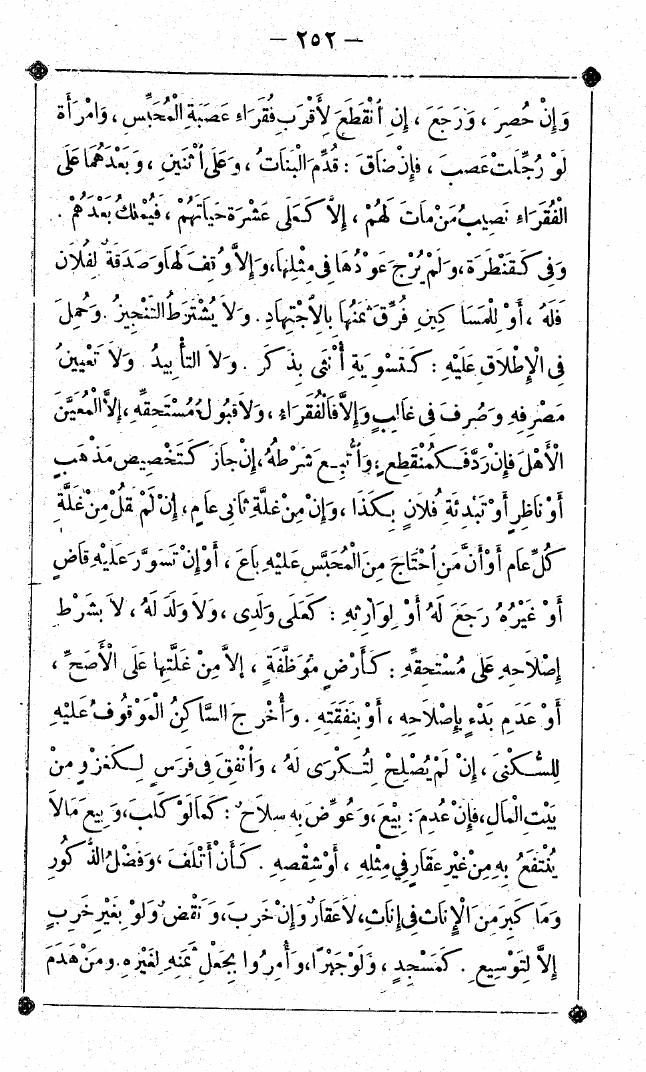 — ٢٥٢ —
وَإِنْ حُصِرَ ، وَرَجَعَ ، إِنِ ٱنْقَطَعَ لِأَقْرَبِ فُقَرَاءِ عَصَبَةِ الْمُحَبِّسِ ، وَٱمْرَأَةٍ
لَوْ رُجِّلَتْ عَصَبَ ، فَإِنْ ضَاقَ : قُدِّمَ الْبَنَاتُ ، وَعَلَى ٱثْنَيْنِ ، وَبَعْدَهُمَا عَلَى
الْفُقَرَاءِ نَصِيبُ مَنْ مَاتَ لَهُمْ ، إِلاَّ كَعَلَى عَشَرَةٍ حَيَاتَهُمْ ، فَيُمْلَكُ بَعْدَهُمْ .
وَفِي كَقَنْطَرَةٍ ، وَلَمْ يُرْجَ عَوْدُهَا فِي مِثْلِهَا ، وَإِلاَّ وُقِفَ لَهَا وَصَدَقَةٌ لِفُلاَنٍ
فَلَهُ ، أَوْ لِلْمَسَاكِينِ فُرِّقَ ثَمَنُهَا بِالْاِجْتِهَادِ . وَلاَ يُشْتَرَطُ التَّنْجِيزُ . وَحُمِلَ
فِي الْإِطْلاَقِ عَلَيْهِ : كَتَسْوِيَةِ أُنْثَى بِذَكَرٍ . وَلاَ التَّأْبِيدُ وَلاَ تَعْيِينُ
مَصْرِفِهِ وَصُرِفَ فِي غَالِبٍ وَإِلاَّ فَالْفُقَرَاءِ ، وَلاَ قَبُولُ مُسْتَحِقِّهِ ، إِلاَّ الْمُعَيَّنَ
الْأَهْلَ فَإِنْ رَدَّ فَكَمُنْقَطِعٍ ، وَٱتُّبِعَ شَرْطُهُ ، إِنْ جَازَ كَتَخْصِيصِ مَذْهَبٍ
أَوْ نَاظِرٍ أَوْ تَبْدِئَةِ فُلاَنٍ بِكَذَا ، وَإِنْ مِنْ غَلَّةِ ثَانِي عَامٍ ، إِنْ لَمْ يَقُلْ مِنْ غَلَّةِ
كُلِّ عَامٍ أَوْ أَنَّ مَنِ ٱحْتَاجَ مِنَ الْمُحَبَّسِ عَلَيْهِ بَاعَ ، أَوْ إِنْ تَسَوَّرَ عَلَيْهِ قَاضٍ
أَوْ غَيْرُهُ رَجَعَ لَهُ أَوْ لِوَارِثِهِ : كَعَلَى وَلَدِي ، وَلاَ وَلَدَ لَهُ ، لاَ بِشَرْطِ
إِصْلاَحِهِ عَلَى مُسْتَحِقِّهِ : كَأَرْضٍ مُوَظَّفَةٍ ، إِلاَّ مِنْ غَلَّتِهَا عَلَى الْأَصَحِّ ،
أَوْ عَدَمِ بَدْءٍ بِإِصْلاَحِهِ ، أَوْ بِنَفَقَتِهِ . وَأُخْرِجَ السَّاكِنُ الْمَوْقُوفُ عَلَيْهِ
لِلسُّكْنَى ، إِنْ لَمْ يُصْلِحْ لِتُكْرَى لَهُ ، وَأُنْفِقَ فِي فَرَسٍ لِكَغَزْوٍ مِنْ
بَيْتِ الْمَالِ ، فَإِنْ عُدِمَ : بِيعَ ، وَعُوِّضَ بِهِ سِلاَحٌ : كَمَا لَوْ كَلِبَ ، وَبِيعَ مَا لاَ
يُنْتَفَعُ بِهِ مِنْ غَيْرِ عَقَارٍ فِي مِثْلِهِ ، أَوْ شِقْصِهِ . كَأَنْ أُتْلِفَ ، وَفَضْلُ الذُّكُورِ
وَمَا كَبِرَ مِنَ الْإِنَاثِ فِي إِنَاثٍ ، لاَ عَقَارٌ وَإِنْ خَرِبَ ، وَنَقْضٌ وَلَوْ بِغَيْرِ خَرِبٍ
إِلاَّ لِتَوْسِيعِ . كَمَسْجِدٍ ، وَلَوْ جَبْرًا ، وَأُمِرُوا بِجَعْلِ ثَمَنِهِ لِغَيْرِهِ . وَمَنْ هَدَمَ